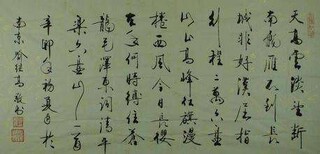 天高雲淡望斷
南飛雁不到長
城非好漢屈指
行程二萬六盤
山上高峰紅旗漫
捲西風今日長纓
在手何時縛住蒼
龍毛澤東詞清平
樂六盤山一首
辛卯初夏於
南京